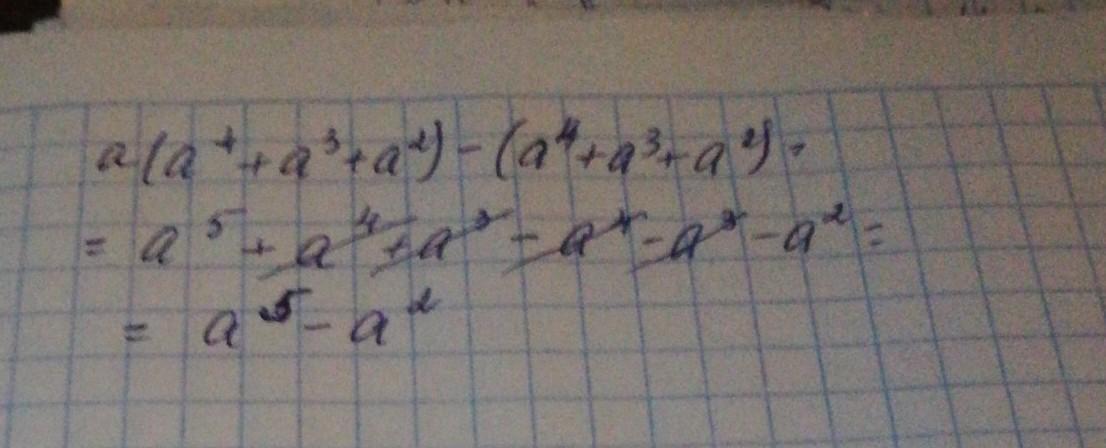 a(a⁴+a³+a²)-(a⁴+a³+a²)=
= a⁵+a⁴+a³-a⁴-a³-a²=
= a⁵-a²